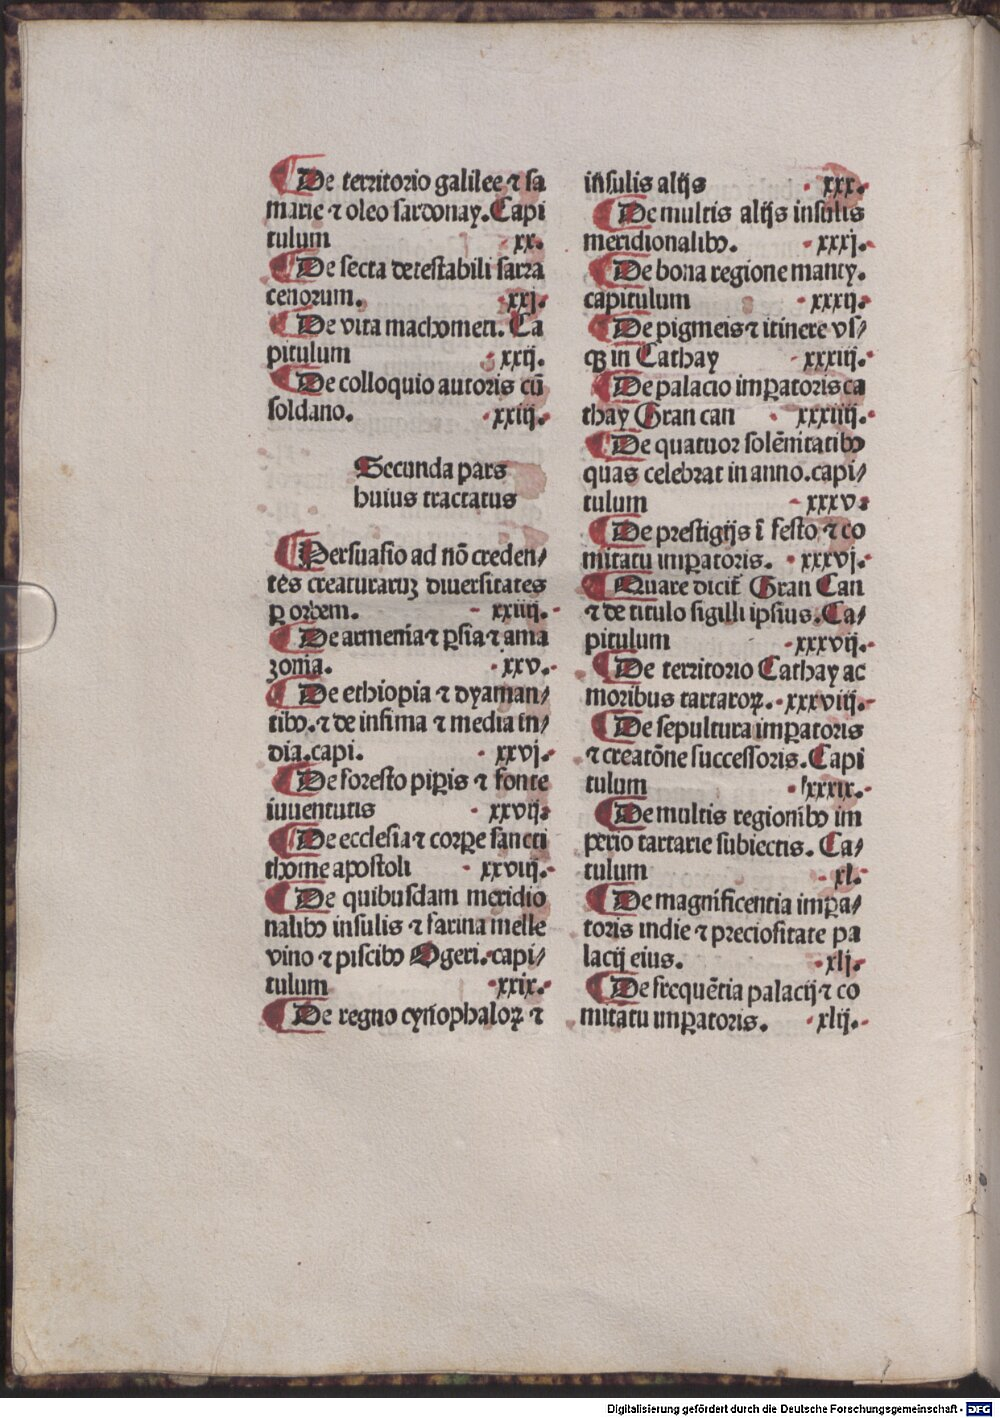 De territorio galilee ⁊ sa
marie ⁊ oleo sardonay. Capi
tulum ·xx·
De secta detestabili sarra
cenorum. ·xxj·
De vita machometi. Ca
pitulum ·xxij·
De colloquio autoris cū
soldano. ·xxiij·
Secunda pars
huius tractatus
Persuasio ad nō creden/
tes creaturaruꝫ diuersitates
ꝑ orbem. ·xxiiij·
De armenia ⁊ ꝑsia ⁊ ama
zonia. ·xxv·
De ethiopia ⁊ dyaman/
tibꝰ. ⁊ de infima ⁊ media in/
dia. capi. ·xxvj·
De foresto piꝑis ⁊ fonte
iuuentutis ·xxvij·
De ecclesia ⁊ corꝑe sancti
thome apostoli ·xxviij·
De quibusdam meridio
nalibꝰ insulis ⁊ farina melle
vino ⁊ piscibꝰ Ogeri. capi/
tulum ·xxix·
De regno cynophaloꝝ ⁊
insulis alijs ·xxx·
De multis alijs insulis
meridionalibꝰ. ·xxxj·
De bona regione manty.
capitulum ·xxxij·
De pigmeis ⁊ itinere vs/
qꝫ in Cathay ·xxxiij·
De palacio imꝑatoris ca
thay Gran can ·xxxiiij·
De quatuor solēnitatibꝰ
quas celebrat in anno. capi/
tulum ·xxxv·
De prestigijs ī festo ⁊ co
mitatu imꝑatoris. ·xxxvj·
Quare dicit̄ Gran Can
⁊ de titulo sigilli ipsius. Ca/
pitulum ·xxxvij·
De territorio Cathay ac
moribus tartaroꝝ. ·xxxviij·
De sepultura imꝑatoris
⁊ creatōne successoris. Capi
tulum ·xxxix·
De multis regionibꝰ im
perio tartarie subiectis. Ca/
tulum ·xl·
De magnificentia imꝑa/
toris indie ⁊ preciositate pa
lacij eius. ·xlj·
De frequētia palacij ⁊ co
mitatu imꝑatoris. ·xlij·
Digitalisierung gefördert durch die Deutsche Forschungsgemeinschaft - DFG